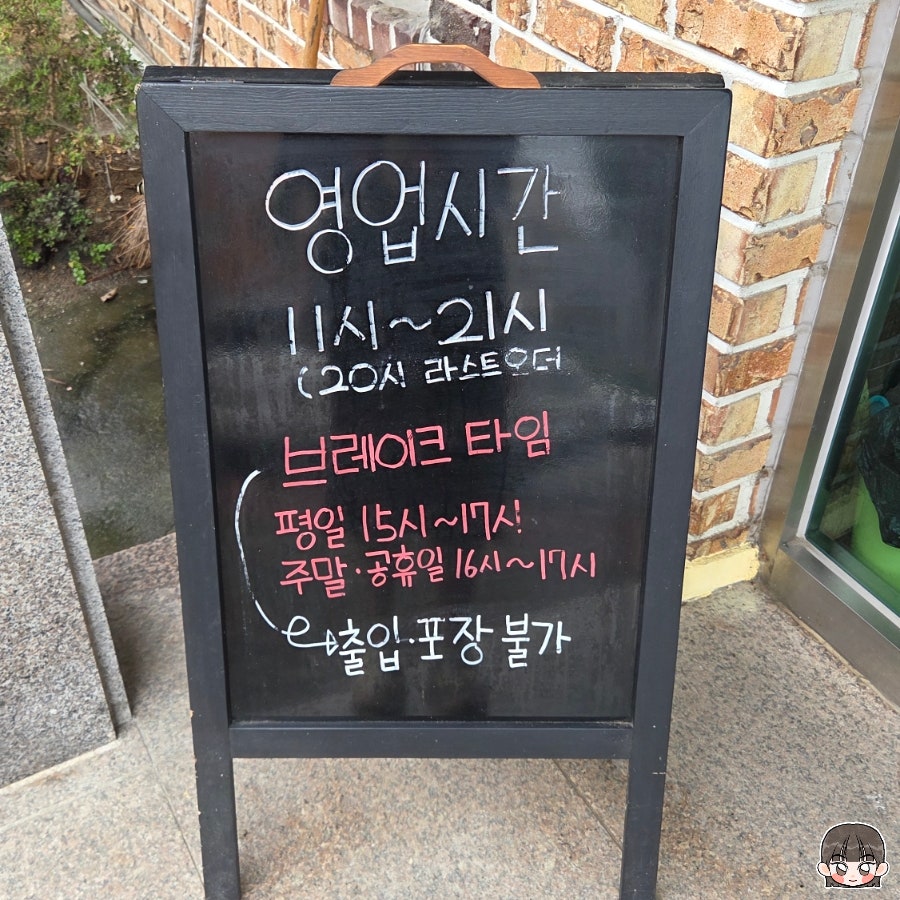 영업시간
11시~21시
(20시 라스트오더
브레이크 타임
평일 15시~17시
주말·공휴일 16시~17시
출입·포장 불가